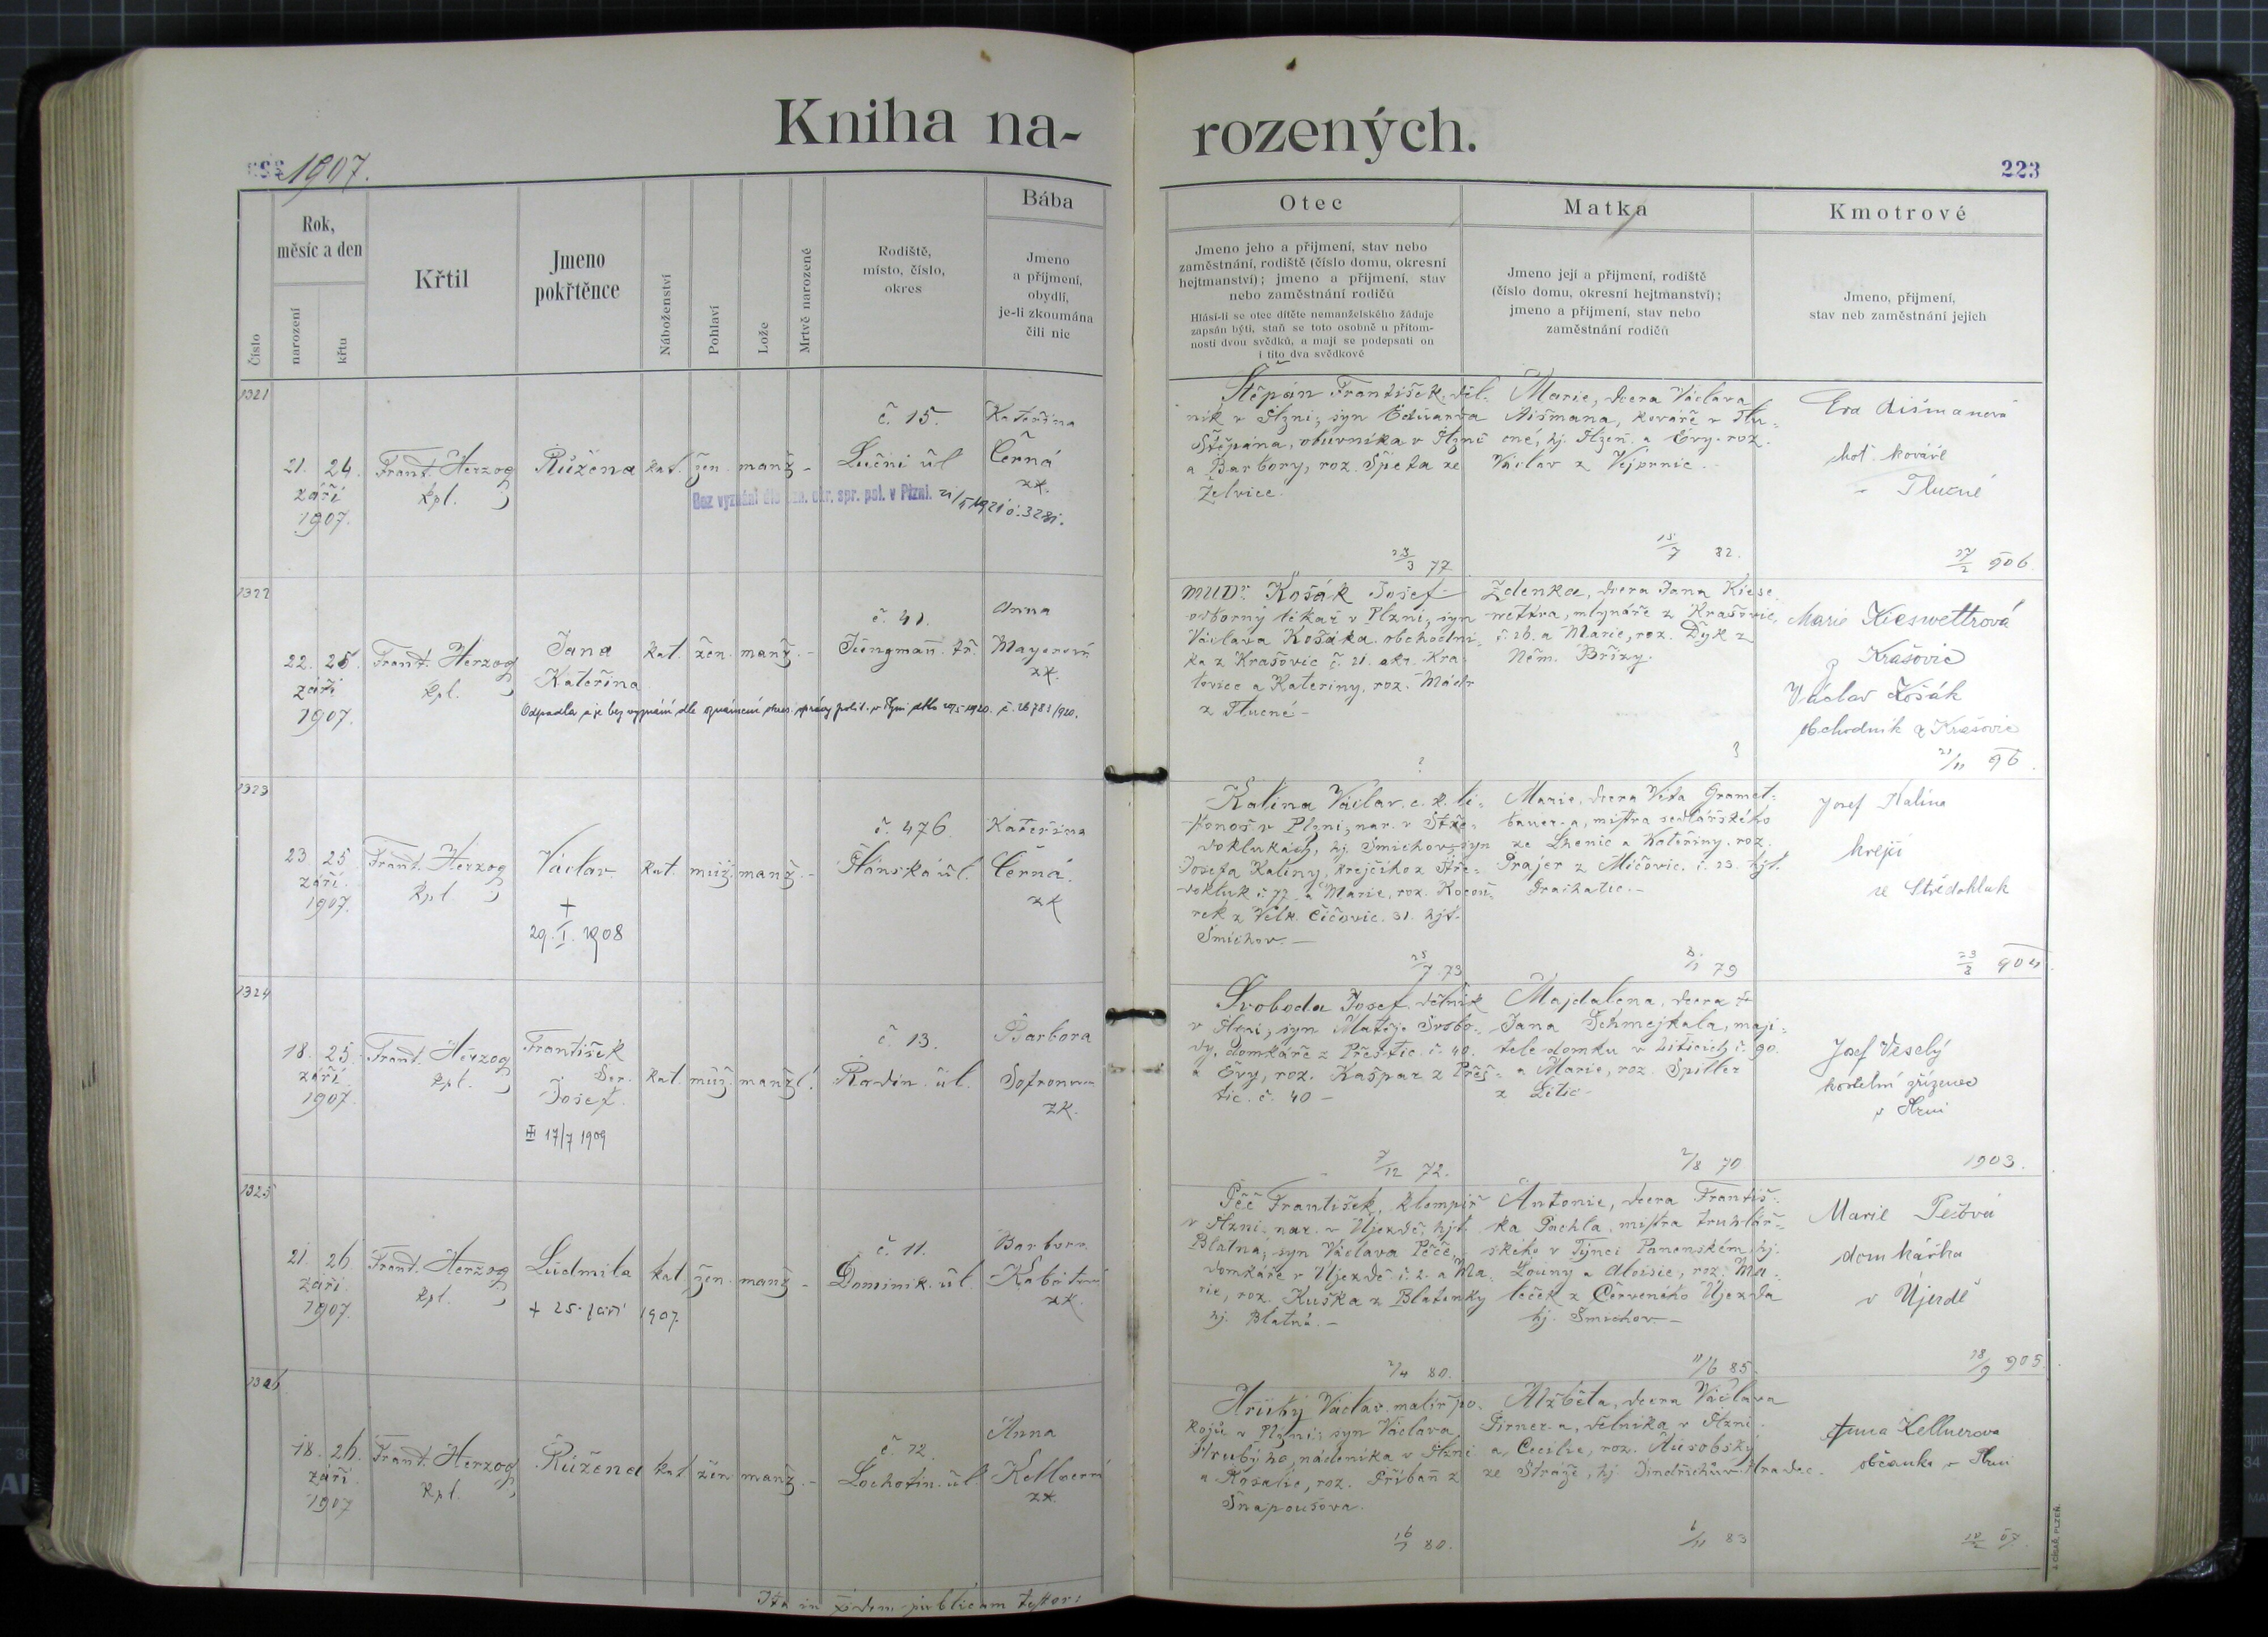 Kniha na-
rozených.
1907.
223
Číslo
Rok,
měsíc a den
narození
křtu
Křtil
Jmeno
pokřtěnce
Náboženství
Pohlaví
Lože
Mrtvě narozené
Rodiště,
místo, číslo,
okres
Bába
Jmeno
a příjmení,
obydlí,
je-li zkoumána
čili nic
Otec
Jmeno jeho a příjmení, stav nebo
zaměstnání, rodiště (číslo domu, okresní
hejtmanství); jmeno a příjmení, stav
nebo zaměstnání rodičů
Hlásí-li se otec dítěte nemanželského žádaje
zapsán býti, staň se toto osobně u přítom-
nosti dvou svědků, a mají se podepsati on
i tito dva svědkové
Matka
Jmeno její a příjmení, rodiště
(číslo domu, okresní hejtmanství);
jmeno a příjmení, stav nebo
zaměstnání rodičů
Kmotrové
Jmeno, příjmení,
stav neb zaměstnání jejich
1321
21. 24.
září
1907.
Frant. Herzog
kpl.
Růžena
kat. žen. manž. -
č. 15.
Luční ul
Kateřina
Černá
zk.
Bez vyznání dle ozn. okr. spr. pol. v Plzni.
Štěpán František, děl-
ník v Plzni, syn Eduarda
Štěpána, obuvníka v Plzni
a Barbory, roz. Špeta ze
Želvice.
23/3 77
Marie, dcera Václava
Aišmana, kováře v Tlu-
cné, hj. Plzeň a Evy, roz.
Václav z Vejprnic.
15/7 82.
Eva Aišmanová
choť kováře
Tlucné
27/2 906.
1322
22. 25.
září
1907.
Frant. Herzog
kpl.
Jana
Kateřina
kat. žen. manž. -
č. 41.
Jungman. tř.
Anna
Mayerová
zk.
Odpadla a je bez vyznání dle oznámení okres. správy polit. v Plzni 1920. č. 26783/920.
MUDr. Košák Josef
odborný lékař v Plzni, syn
Václava Košáka, obchodní-
ka z Krašovic č. 21. okr. Kra-
lovice a Kateřiny, roz. Mádr
z Tlucné -
?
Zdenka, dcera Jana Kiese-
wettra, mlynáře z Krašovic,
č. 26. a Marie, roz. Dyk z
Něm. Břízy.
?
Marie Kieswettrová
Krašovic
Václav Košák
obchodník z Krašovic
21/11 96.
1323
23 25
září
1907.
Frant. Herzog
kpl.
Václav
+
29. I. 1908
kat. muž. manž. -
č. 476.
Plánská ul.
Kateřina
Černá.
zk
Kalina Václav, c. k. li-
stonoš v Plzni, nar. v Stře-
doklukách, hj. Smíchov, syn
Josefa Kaliny, krejčího z Stře-
dokluk č. 77. a Marie, roz. Kocou-
rek z Velk. Čičovic. 31. hjt.
Smíchov. -
25/7 73
Marie, dcera Víta Gramet-
bauer-a, mistra sedlářského
ze Lhenic a Kateřiny, roz.
Prajer z Mičovic, č. 23. hjt.
Prachatic. -
79
Josef Kalina
krejčí
ze Středokluk
23/8 904
1324
18. 25.
září
1907.
Frant. Herzog
kpl.
František
Ser.
Josef.
17/7 1909
kat. muž. manžel.
č. 13.
Radin. ul.
Barbora
zk.
Svoboda Josef, dělník
v Plzni, syn Matěje Svobo-
dy, domkáře z Přeštic. č. 40.
a Evy, roz. Kašpar z Přeš-
tic. č. 40 -
7/12 72.
Majdalena, dcera
Jana Schmejkala, maji-
tele domku v Liticích č. 90.
a Marie, roz. Spiller
z Litic -
2/8 70
Josef Veselý
kostelní zřízenec
v Plzni
1903.
1325
21. 26.
září
1907.
Frant. Herzog
kpl.
Ludmila
+ 25. září 1907.
kat. žen. manž. -
č. 11.
Dominik. ul.
Barbora
Kabátová
zk.
Péč František, klempíř
v Plzni, nar. v Újezdě, hjt.
Blatná, syn Václava Péče,
domkáře v Újezdě č. 2. a Ma-
rie, roz. Kuška z Blatenky
hj. Blatná. -
2/4 80.
Antonie, dcera Františ-
ka Pachla, mistra truhlář-
ského v Týnci Panenském, hj.
Louny a Aloisie, roz. Ma-
leček z Červeného Újezda
hj. Smíchov. -
11/6 85.
Marie Pečová
domkářka
v Újezdě
18/9 905.
1326
18. 26.
září
1907
Frant. Herzog
kpl.
Růžena
kat žen manž. -
č. 12.
Lochotín. ul.
Anna
Kellnerová
zk.
Hrubý Václav, malíř po-
kojů v Plzni, syn Václava
Hrubýho, nádeníka v Plzni
a Rosalie, roz. Přibáň z
Šnapoušova.
80.
Alžběta, dcera Václava
Pirner-a, dělníka v Plzni
a Cecilie, roz.
ze Stráže, hj. Jindřichův Hradec.
6/11 83
Anna Kellnerova
občanka v Plzni
Ita in fidem publicam testor:
J. CÍSAŘ, PLZEŇ.